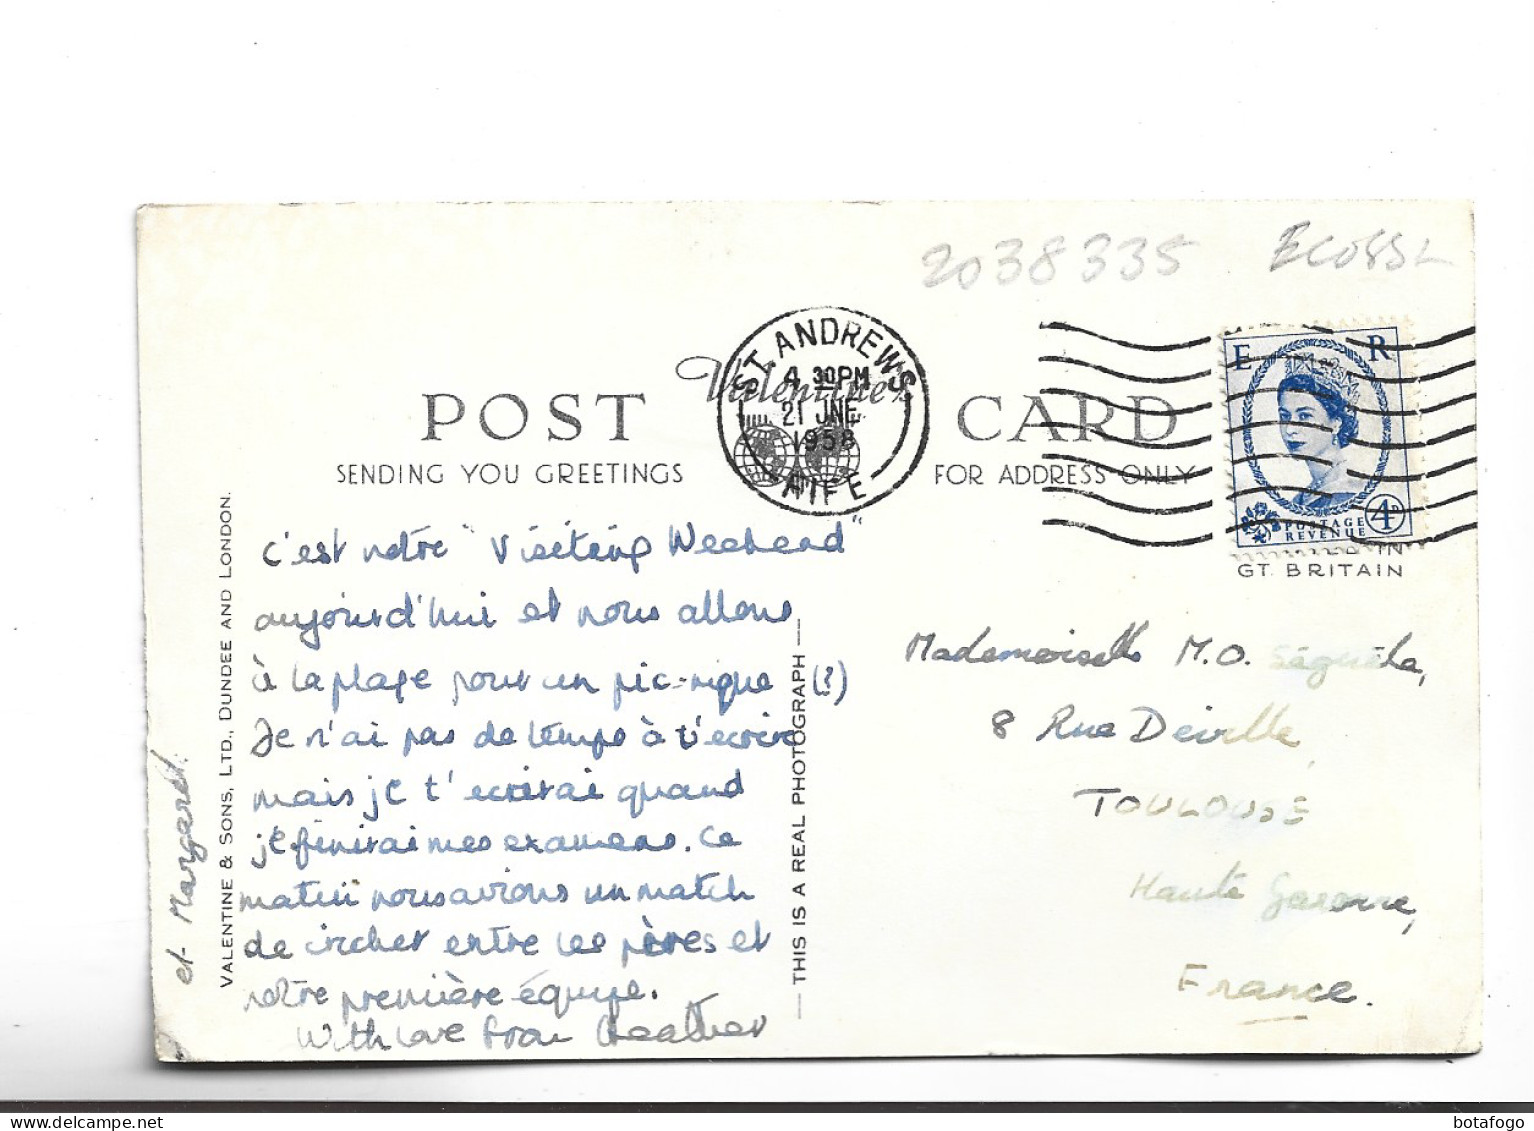 2038335 ECOSSE
ST. ANDREWS
4 30PM
21 JNE
1958
FIFE
Valentine's
POST CARD
SENDING YOU GREETINGS
FOR ADDRESS ONLY
E R
POSTAGE
REVENUE
4D
IN
GT. BRITAIN
C'est notre "Visiting Weekend"
aujourd'hui et nous allons
à la plage pour un pic-nique (?)
Je n'ai pas de temps à t'ecrire
mais je t'ecrirai quand
je finirai mes examens. Ce
matin nous avions un match
de cricket entre les pères et
notre première équipe.
With love from Heather
et Margaret.
VALENTINE & SONS, LTD., DUNDEE AND LONDON.
THIS IS A REAL PHOTOGRAPH
Mademoiselle M.O. Séguéla,
8 Rue Deville,
TOULOUSE
Haute Garonne,
France.
botafogo